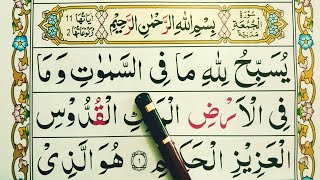 سُوْرَةُ الْجُمُعَةِ مَدَنِيَّةٌ
بِسْمِ اللّٰهِ الرَّحْمٰنِ الرَّحِيْمِ
اٰيَاتُهَا 11
رُكُوْعَاتُهَا 2
يُسَبِّحُ لِلّٰهِ مَا فِى السَّمٰوٰتِ وَمَا
فِى الْاَرْضِ الْمَلِكِ الْقُدُّوْسِ
الْعَزِيْزِ الْحَكِيْمِ ۝١ هُوَ الَّذِىْ